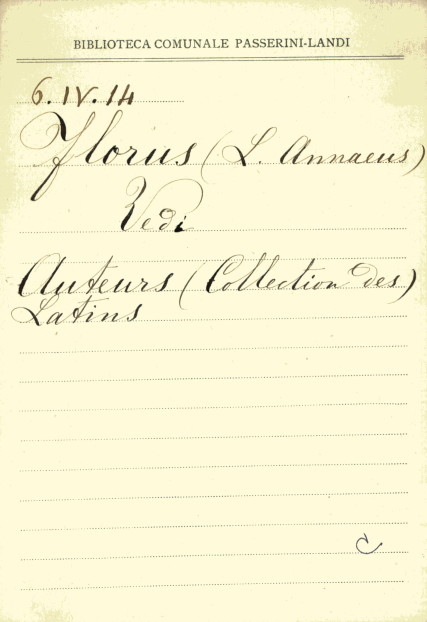 BIBLIOTECA COMUNALE PASSERINI-LANDI
6.IV.14
Florus (L. Annaeus)
Vedi
Auteurs (Collection des)
Latins
C